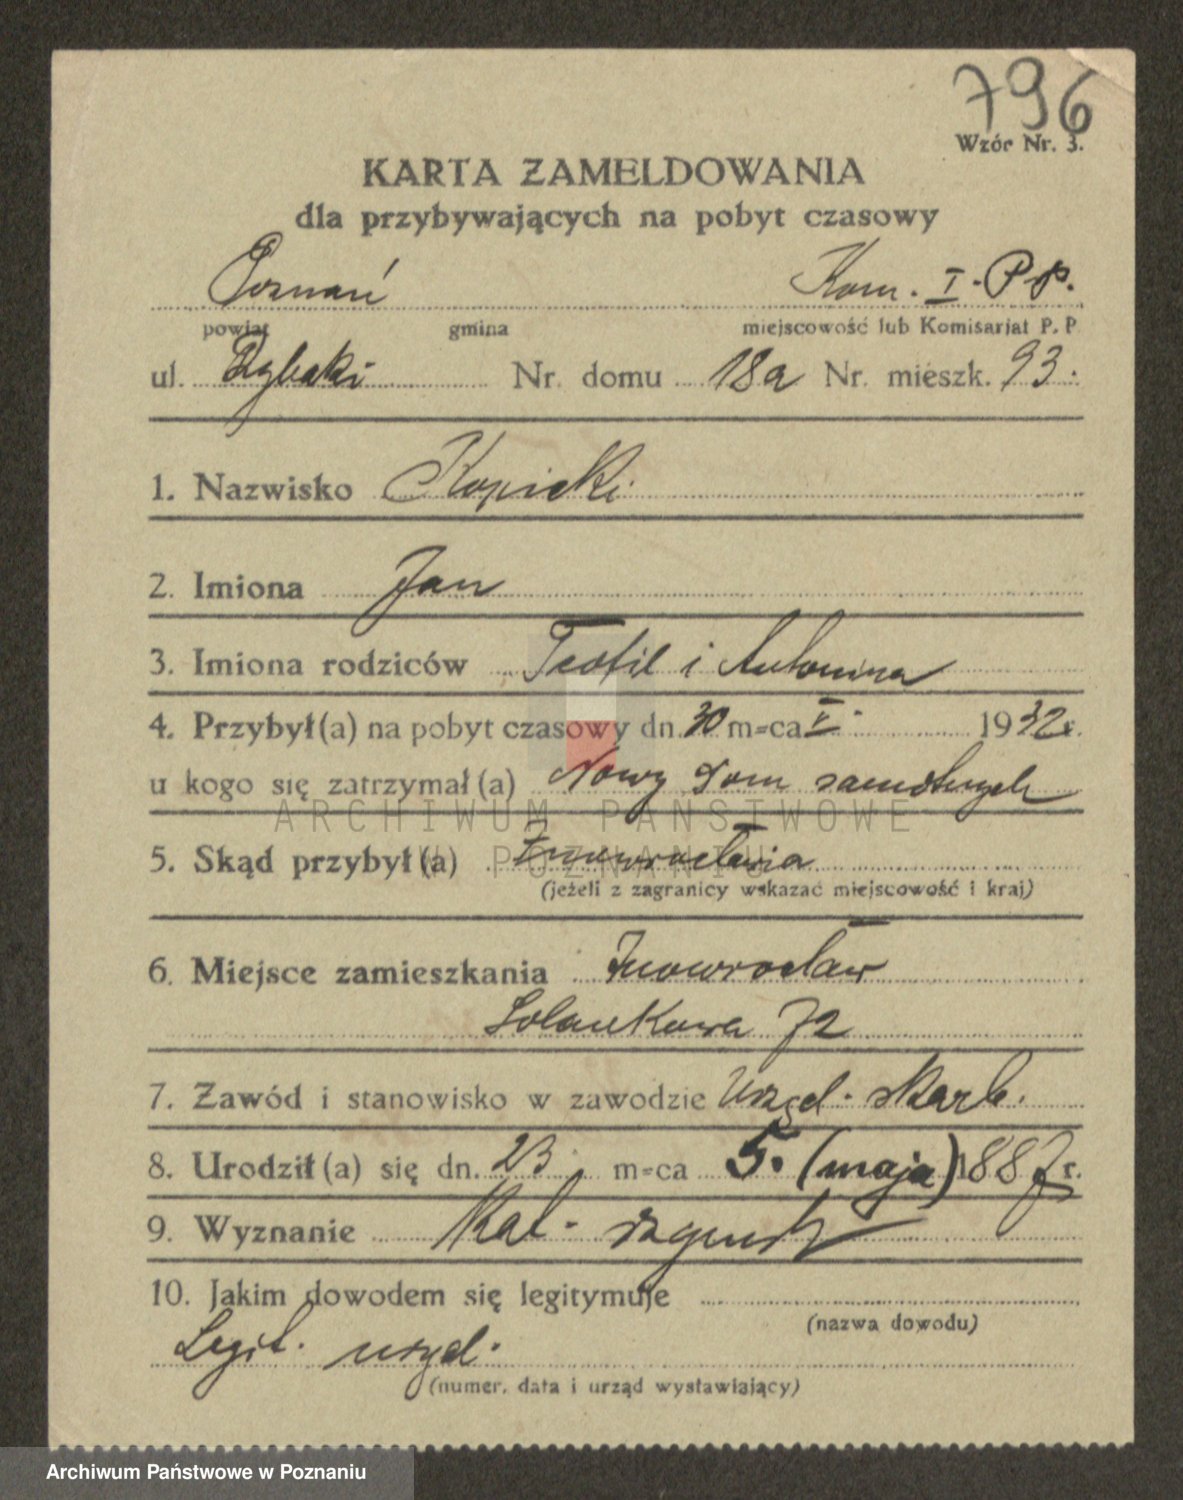 796
Wzór Nr. 3.
KARTA ZAMELDOWANIA
dla przybywających na pobyt czasowy
Poznań Kom. I. P.P.
powiat gmina miejscowość lub Komisarjat P. P.
ul. Rybaki Nr. domu 18a Nr. mieszk. 93.
1. Nazwisko Kopicki
2. Imiona Jan
3. Imiona rodziców Teofil i Antonina
4. Przybył(a) na pobyt czasowy dn. 30 m-ca V. 1932 r.
u kogo się zatrzymał(a) Nowy Dom samotnych
ARCHIWUM PAŃSTWOWE
W POZNANIU
5. Skąd przybył(a) Inowrocławia
(jeżeli z zagranicy wskazać miejscowość i kraj)
6. Miejsce zamieszkania Inowrocław
Solankowa 72
7. Zawód i stanowisko w zawodzie Urzęd. skarb.
8. Urodził(a) się dn. 23 m-ca 5. (maja) 1887 r.
9. Wyznanie Kat. rzymsk
10. Jakim dowodem się legitymuje
(nazwa dowodu)
Legit. urzęd.
(numer, data i urząd wystawiający)
Archiwum Państwowe w Poznaniu